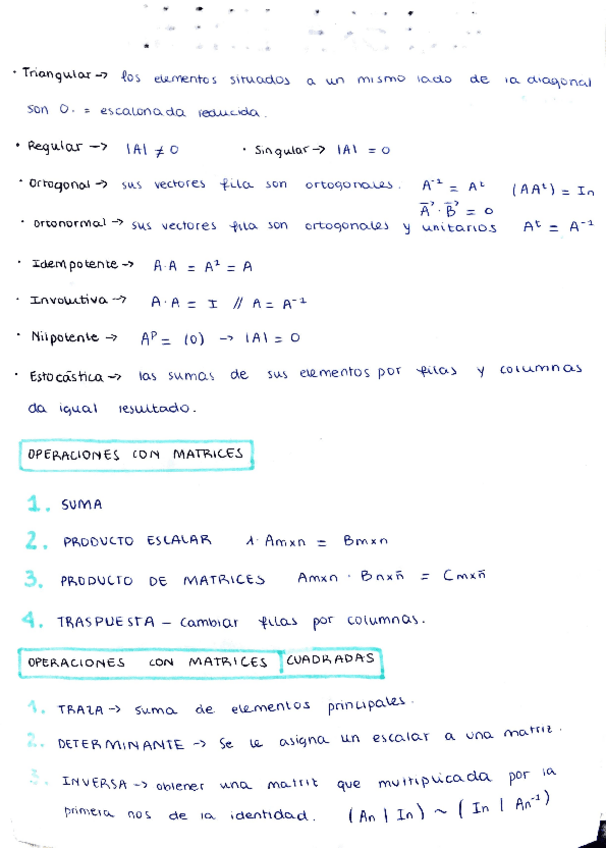 · Triangular → los elementos situados a un mismo lado de la diagonal
son 0. = escalonada reducida.
· Regular → |A| ≠ 0 · Singular → |A| = 0
· Ortogonal → sus vectores fila son ortogonales. A⁻¹ = Aᵗ (AAᵗ) = In
A⃗ · B⃗ = 0
· Ortonormal → sus vectores fila son ortogonales y unitarios Aᵗ = A⁻¹
· Idempotente → A·A = A² = A
· Involutiva → A·A = I // A = A⁻¹
· Nilpotente → Aᵖ = (0) → |A| = 0
· Estocástica → las sumas de sus elementos por filas y columnas
da igual resultado.
OPERACIONES CON MATRICES
1. SUMA
2. PRODUCTO ESCALAR λ · Amxn = Bmxn
3. PRODUCTO DE MATRICES Amxn · Bnxñ = Cmxñ
4. TRASPUESTA – cambiar filas por columnas.
OPERACIONES CON MATRICES CUADRADAS
1. TRAZA → suma de elementos principales.
2. DETERMINANTE → Se le asigna un escalar a una matriz.
3. INVERSA → obtener una matriz que multiplicada por la
primera nos de la identidad. (An | In) ~ (In | An⁻¹)